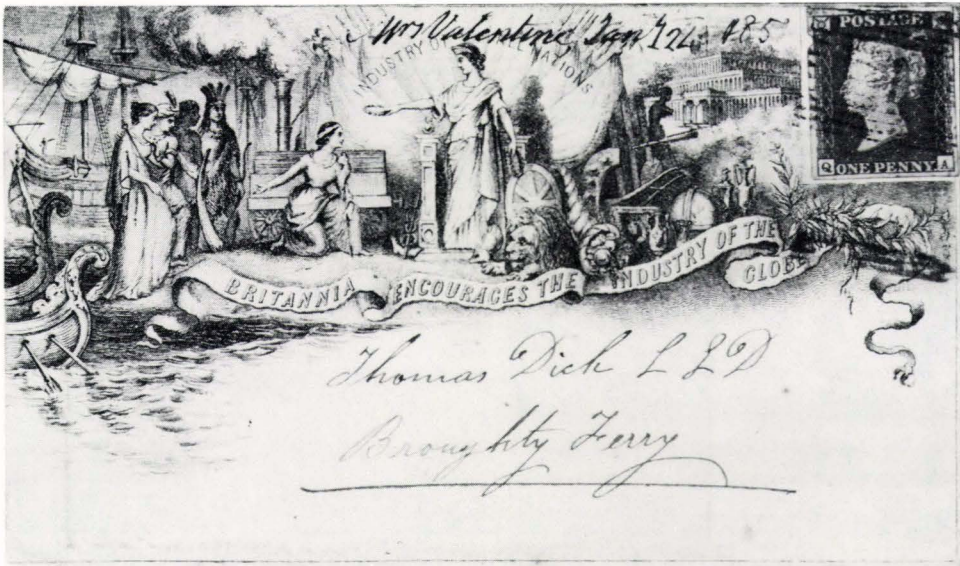 Mrs Valentine Jan 185
INDUSTRY OF NATIONS
POSTAGE
Q ONE PENNY A
BRITANNIA ENCOURAGES THE INDUSTRY OF THE GLOBE
Thomas Dick L L D
Broughty Ferry